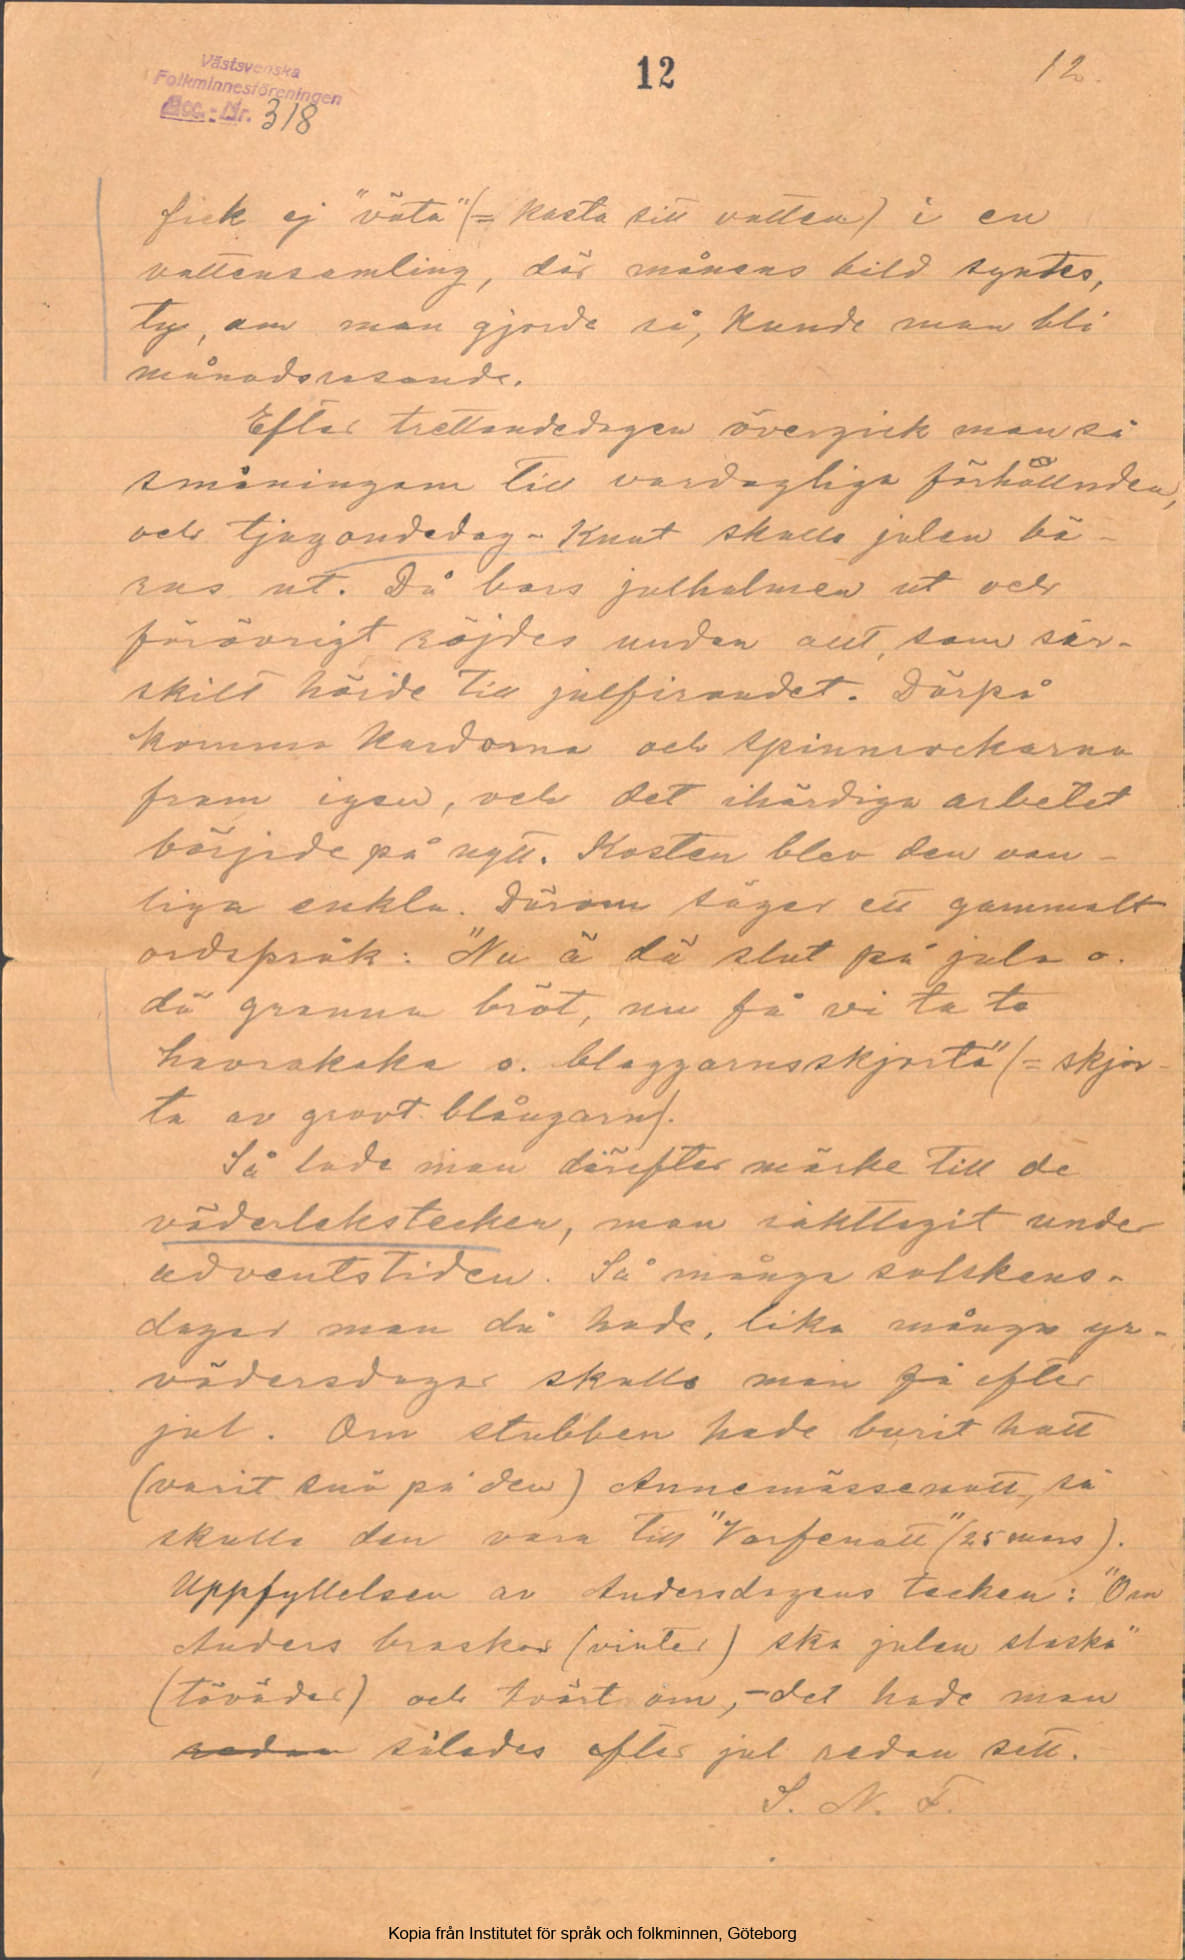 Västsvenska
Folkminnesföreningen
Acc.-Nr. 318
12
12.
fick ej "väta" (= kasta sitt vatten) i en
vattensamling, där månens bild syntes,
ty, om man gjorde så, kunde man bli
månadsrasande.
Efter trettondedagen övergick man så
småningom till vardagliga förhållanden,
och tjugondedag-Knut skulle julen bä-
ras ut. Då bars julhalmen ut och
förövrigt röjdes undan allt, som sär-
skilt hörde till julfirandet. Därpå
komma kardorna och spinnrockarna
fram igen, och det ihärdiga arbetet
började på nytt. Kosten blev den van-
liga enkla. Därom säger ett gammalt
ordspråk: "Nu ä dä slut på jula o.
dä granna bröt, nu få vi ta te
havrakaka o. blaggarnsskjorta" (= skjor-
ta av grovt blångarn).
Så lade man därefter märke till de
väderlekstecken, man iakttagit under
adventstiden. Så många solskens-
dagar man då hade, lika många yr-
vädersdagar skulle man få efter
jul. Om stubben hade burit hatt
(varit snö på den) Annemässenatt, så
skulle den vara till "Varfenatt" (25 mars).
Uppfyllelsen av Andersdagens tecken: "Om
Anders braskar (vinter) ska julen slaska"
(töväder) och tvärt om, - det hade man
redan således efter jul redan sett.
S. N. F.
Kopia från Institutet för språk och folkminnen, Göteborg